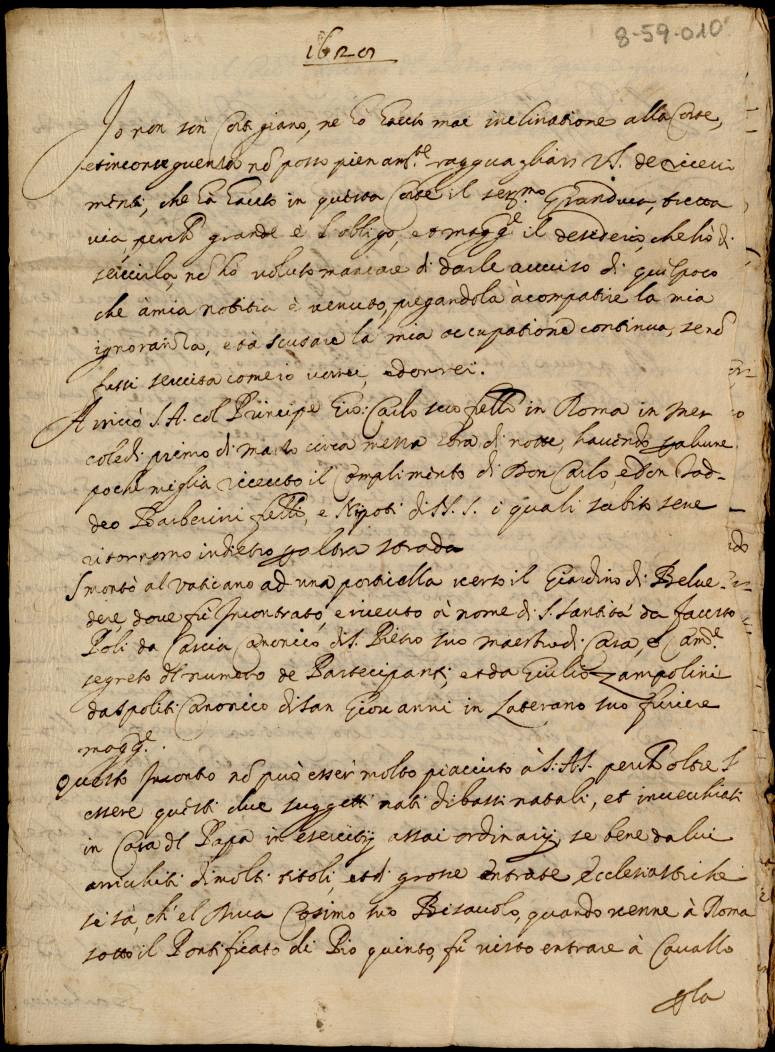 8-59-010
1628
Io non son Cortigiano, ne hò hauto mai inclinatione alla Corte,
et in conseguenza nō posso pienam.te ragguagliar V.S. de riceui
menti, che hà hauto in questa Corte il ser.mo Granduca, tutta
uia, perche grande è l'obligo, et magg.e il desiderio, che hò di
seruirla, nō ho voluto mancare di darle auuiso di quel poco
che à mia notitia è venuto, pregandola à compatire la mia
ignoranza, et à scusare la mia occupatione continua, se nō
fussi seruita come io vorrei, e dourei.
Arriuò S.A. col Principe Gio: Carlo suo fr̄ello in Roma in Mer
coledi primo di marzo circa mezza hora di notte, hauendo
poche miglia riceuuto il Complimento di Don Carlo, e Don Tad-
deo Barberini fr̄elli, e Nipoti di N.S. i quali subito se ne
ritornorno indietro p altra strada
Smontò al Vaticano ad una porticella uerso il Giardino di Belue-
dere doue fù Incontrato, e riceuto à nome di S. Santità da Fausto
Poli da Cascia Canonico di S. Pietro suo maestro di Casa, e Cam.e
segreto del numero de Partecipanti, et da Giulio Zampolini
da Spoliti Canonico di San Giouanni in Laterano suo furiere
magg.e.
Questo Incontro nō può esser molto piaciuto à S.A.S. perche oltre l'
essere questi due suggetti nati di bassi natali, et inuecchiati
in Casa del Papa in esercitij assai ordinarij, se bene da lui
arrichiti di molti titoli, et di grosse entrate Ecclesiastiche
si sà, ch'el Duca Cosimo suo Bisauolo, quando uenne à Roma
sotto il Pontificato di Pio quinto, fù uisto entrare à Cauallo
p la